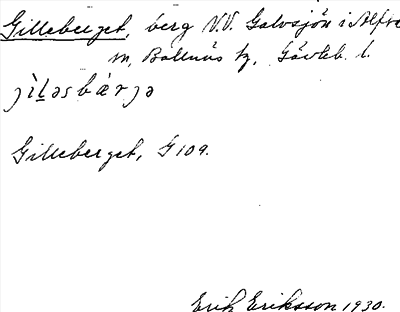 Gilleberget, berg V.V. Galvsjön i Alfta
m, Bollnäs tg, Gävleb. l.
jìl̠əsbærjə
Gilleberget, G 109.
Erik Eriksson 1930.